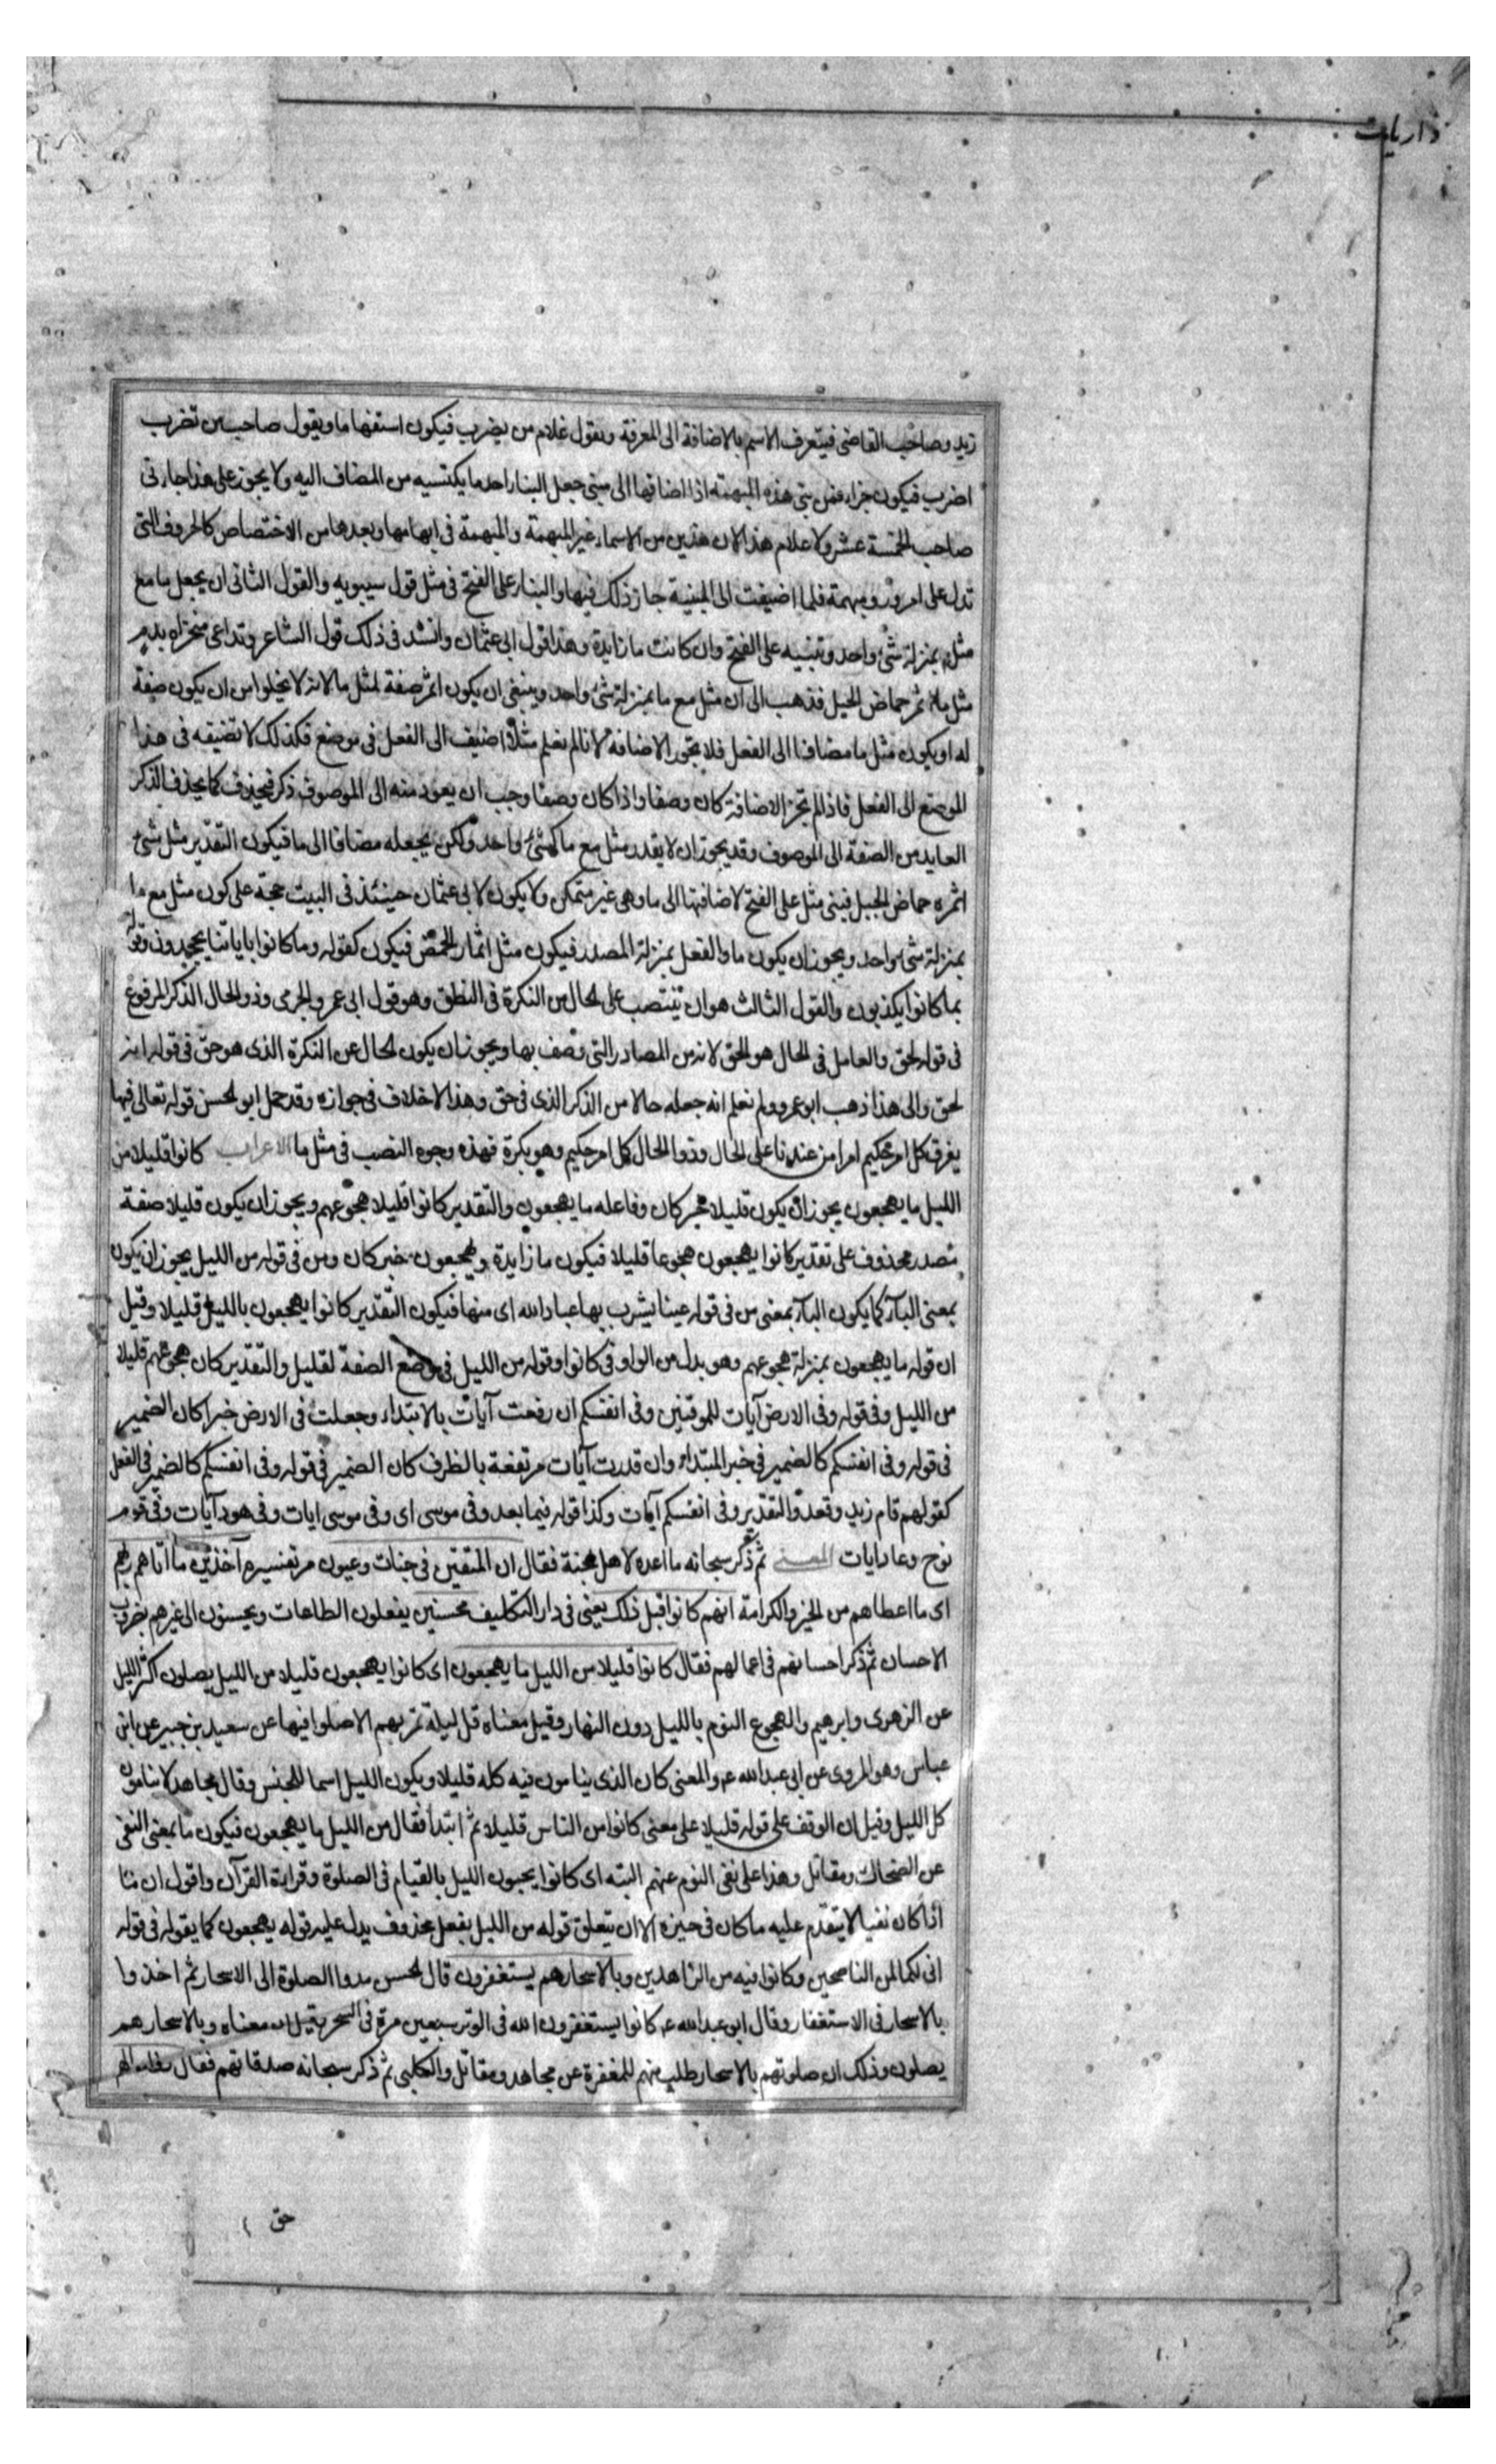 ذاريات
زيد وصاحب القاضي فيتعرف الاسم بالاضافة الى المعرفة ويقول غلام من يضرب فيكون استفهاما ويقول صاحب من تضرب
اضرب فيكون جزاء فمن بنى هذه المبهمة اذا اضافها الى مبنى جعل البناء احد ما يكتسبه من المضاف اليه ولا يجوز على هذا جارتي
صاحب الخمسة عشر ولا غلام هذا لان هذين من الاسماء غير المبهمة والمبهمة في ابهامها وبعدها من الاختصاص كالحروف التي
تدل على امور مبهمة فلما اضيفت الى المبنية جاز ذلك فيها والبناء على الفتح في مثل قول سيبويه والقول الثاني ان يجعل ما مع
مثل بمنزلة شئ واحد وتبنيه على الفتح وان كانت ما زايدة وهذا قول ابي عثمان وانشد في ذلك قول الشاعر وتداعى منخراه بدم
مثل ما اثمر حماض الجبل فذهب الى ان مثل مع ما بمنزلة شئ واحد وينبغي ان يكون اثمر صفة لمثل ما لانه لا يخلوا من ان يكون صفة
له او يكون مثل ما مضافا الى الفعل فلا يجوز الاضافة لانا لم نعلم مثلا اضيف الى الفعل في موضع فكذلك لا تضيفه في هذا
الموضع الى الفعل فاذا لم تجز الاضافة كان وصفا واذا كان وصفا وجب ان يعود منه الى الموصوف ذكر فيحذف كما يحذف الذكر
العايد من الصفة الى الموصوف وقد يجوز ان لا يقدر مثل مع ما كشئ واحد ولكن يجعله مضافا الى ما فيكون التقدير مثل شئ
اثمره حماض الجبل فبنى مثل على الفتح لاضافتها الى ما وهي غير متمكن ولا يكون لابي عثمان حينئذ في البيت حجة على كون مثل مع ما
بمنزلة شئ واحد ويجوز ان يكون ما والفعل بمنزلة المصدر فيكون مثل اثمار الحمض فيكون كقوله وما كانوا باياتنا يجحدون وقوله
بما كانوا يكذبون والقول الثالث هو ان تنتصب على الحال من النكرة في النطق وهو قول ابي عمرو الجرمى وذو الحال الذكر المرفوع
في قوله لحق والعامل في الحال هو الحق لانه من المصادر التي وصف بها ويجوز ان يكون الحال عن النكرة الذي هو حق في قوله انه
لحق والى هذا ذهب ابو عمرو ولم نعلم انه جعله حالا من الذكر الذي في حق وهذا لا خلاف في جوازه وقد حمل ابو الحسن قوله تعالى فيها
يفرق كل امر حكيم امرا من عندنا على الحال وذو الحال كل امر حكيم وهو نكرة فهذه وجوه النصب في مثل ما الاعراب كانوا قليلا من
الليل ما يهجعون يجوز ان يكون قليلا خبر كان وفاعله ما يهجعون والتقدير كانوا قليلا هجوعهم ويجوز ان يكون قليلا صفة
مصدر محذوف على تقدير كانوا يهجعون هجوعا قليلا فيكون ما زايدة ويهجعون خبر كان ومن في قوله من الليل يجوز ان يكون
بمعنى الباء كما يكون الباء بمعنى من في قوله عينا يشرب بها عباد الله اى منها فيكون التقدير كانوا يهجعون بالليل قليلا وقيل
ان قوله ما يهجعون بمنزلة هجوعهم وهو بدل من الواو في كانوا وقوله من الليل في موضع الصفة لقليل والتقدير كان هجوعهم قليلا
من الليل وفي قوله وفي الارض آيات للموقنين وفي انفسكم ان رفعت آيات بالابتداء وجعلت في الارض خبرا كان الضمير
في قوله وفي انفسكم كالضمير في خبر المبتداء وان قدرت آيات مرتفعة بالظرف كان الضمير في قوله وفي انفسكم كالضمير في الفعل
كقولهم قام زيد وقعد والتقدير وفي انفسكم آيات وكذا قوله فيما بعد وفي موسى اى وفي موسى ايات وفي هود آيات وفي قوم
نوح وعاد ايات المعنى ثم ذكر سبحانه ما اعده لاهل الجنة فقال ان المتقين في جنات وعيون مر تفسيره آخذين ما اتاهم ربهم
اى ما اعطاهم من الخير والكرامة انهم كانوا قبل ذلك يعني في دار التكليف محسنين يفعلون الطاعات ويحسنون الى غيرهم بضروب
الاحسان ثم ذكر احسانهم في اعمالهم فقال كانوا قليلا من الليل ما يهجعون اى كانوا يهجعون قليلا من الليل يصلون اكثر الليل
عن الزهرى وابرهيم والهجوع النوم بالليل دون النهار وقيل معناه قل ليلة تمر بهم الا صلوا فيها عن سعيد بن جبير عن ابن
عباس وهو المروى عن ابي عبدالله ع والمعنى كان الذي ينامون فيه كله قليلا ويكون الليل اسما للجنس وقال مجاهد لا ينامون
كل الليل وقيل ان الوقف على قوله قليلا على معنى كانوا من الناس قليلا ثم ابتدأ فقال من الليل ما يهجعون فيكون ما بمعنى النفي
عن الضحاك ومقاتل وهذا على نفي النوم عنهم البته اى كانوا يحيون الليل بالقيام في الصلوة وقراءة القرآن واقول ان ما
اذا كان نفيا لا يتقدم عليه ما كان في حيزه الا ان يتعلق قوله من الليل بفعل محذوف يدل عليه قوله يهجعون كما يقوله في قوله
اني لكما لمن الناصحين وكانوا فيه من الزاهدين وبالاسحار هم يستغفرون قال الحسن مدوا الصلوة الى الاسحار ثم اخذوا
بالاسحار في الاستغفار وقال ابو عبدالله ع كانوا يستغفرون الله في الوتر سبعين مرة في السحر وقيل ان معناه وبالاسحار هم
يصلون وذلك ان صلوتهم بالاسحار طلب منهم للمغفرة عن مجاهد ومقاتل والكلبي ثم ذكر سبحانه صدقاتهم فقال
حق